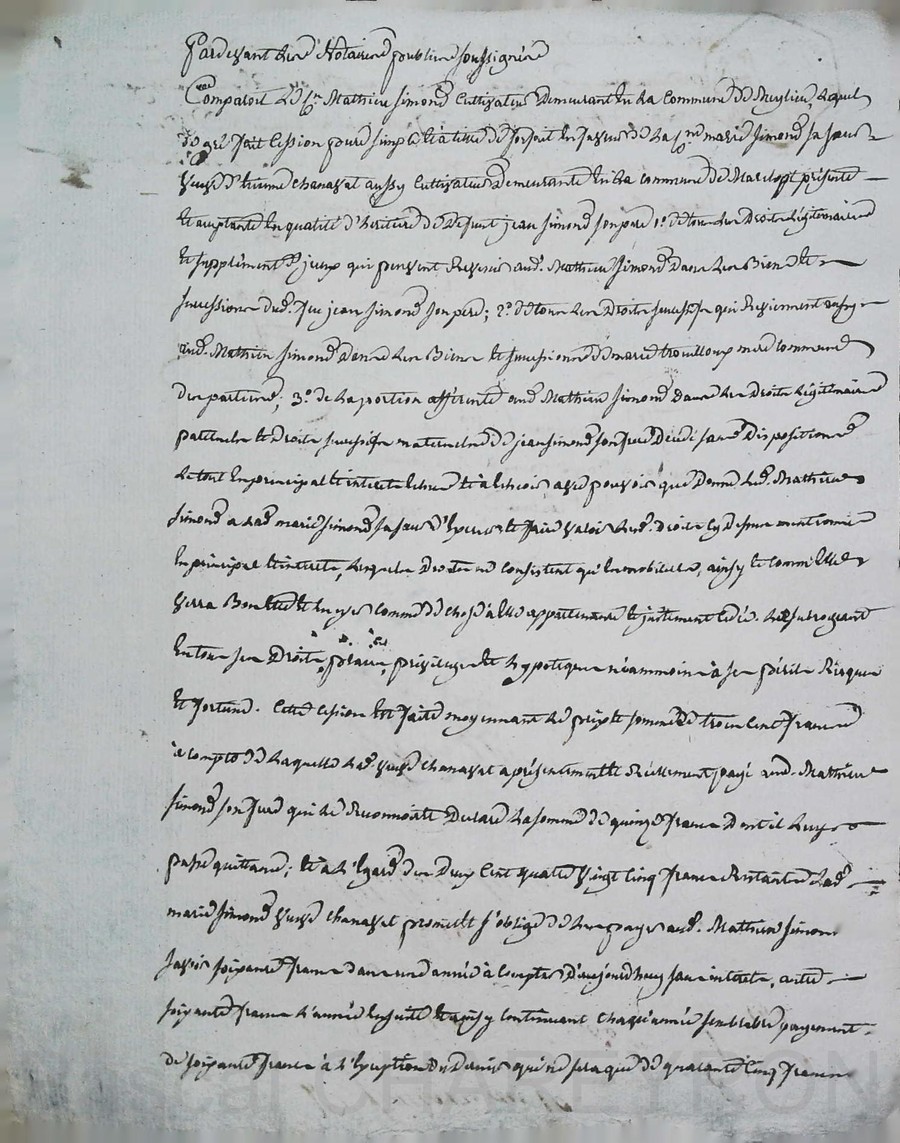 Pardevant les Notaires publics soussignés
Comparait le Sr. Mathieu Simond Cultivateur Demeurant en la Commune de, lequel
de gré fait Cession pure simple et à titre de forfait en faveur de la marie Simond sa sœur
veuve d'étienne Chanavat aussy Cultivateur Demeurante en la commune de présente
et acceptante en qualité d'héritiere de Défunt jean Simond son pere 1o. de tous les Droits légitimaires
et supplément d'yceux qui peuvent Revenir aud. Mathieu Simond Dans les Biens et
successions dud. feu jean Simond son pere; 2o. de tous les Droits successifs qui Reviennent aussy
aud. Mathieu Simond Dans les Biens et successions de marie trouilloux mere commune
des parties; 3o. de la portion afférente aud Mathieu Simond Dans les Droits légitimaires
paternels et Droits successifs maternels de jean Simond son frere Décédé sans Dispositions
le tout en principal et interets échus et à échoir avec pouvoir que Donne led. Mathieu
Simond a lad. marie Simond sa sœur d'exercer et faire valoir lesd. Droits cy Dessus mentionnés
en principal et interets, lesquels Droits ne consistent qu'en mobiliers, ainsy et comme elle
verra Bon être et en user comme de chose à elle appartenante et justement cédée. la subrogeant
en tous ses Droits, places, privileges et hypoteques néammoins à ses périls Risques
et fortune. Cette cession est faite moyennant le prix et somme de trois cent francs
à compte de laquelle lad. veuve Chanavat a présentement et Réellement payé aud. Mathieu
Simond son frere qui le Reconnoit et Declare la somme de quinze francs Dont il luy
passe quittance; et à l'égard des Deux Cent quatre Vingt Cinq francs Restants lad.
marie Simond veuve Chanavat promet et s'oblige de les payer aud. Mathieu Simond
savoir soixante francs dans une année à Compter D'aujourd'huy sans interets, autre
soixante francs l'année ensuite et ainsy continuant chaque année semblable payement
de soixante francs à l'exception du Dernier qui ne sera que de quarante Cinq francs